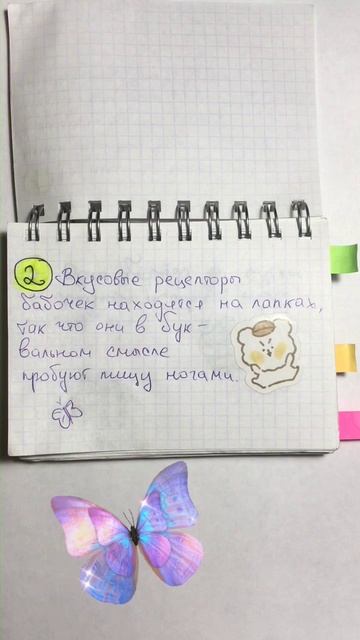 2 Вкусовые рецепторы
бабочек находятся на лапках,
так что они в бук-
вальном смысле
пробуют пищу ногами.